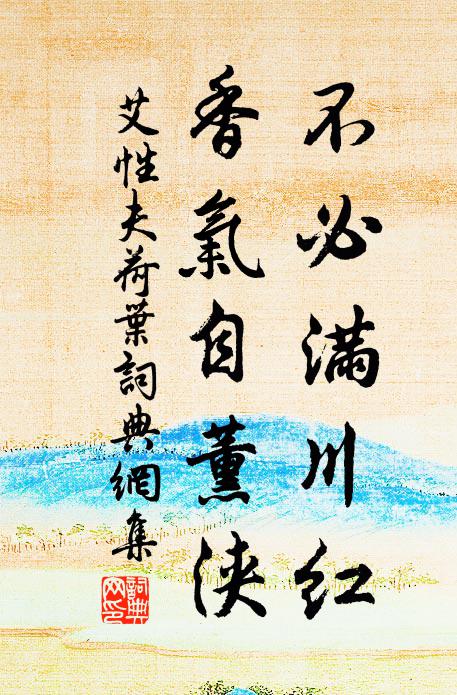 不必滿川红
香氣自薰浹
艾性夫荷葉詞典網集
詞典網印